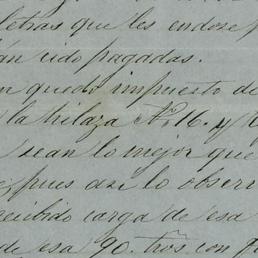 letras que les endose
an sido pagadas.
n quedo impuesto de
la hilaza Nº 16. y
sean lo mejor que
pues asi lo obser
recibido carga de esa
de esa 90. con